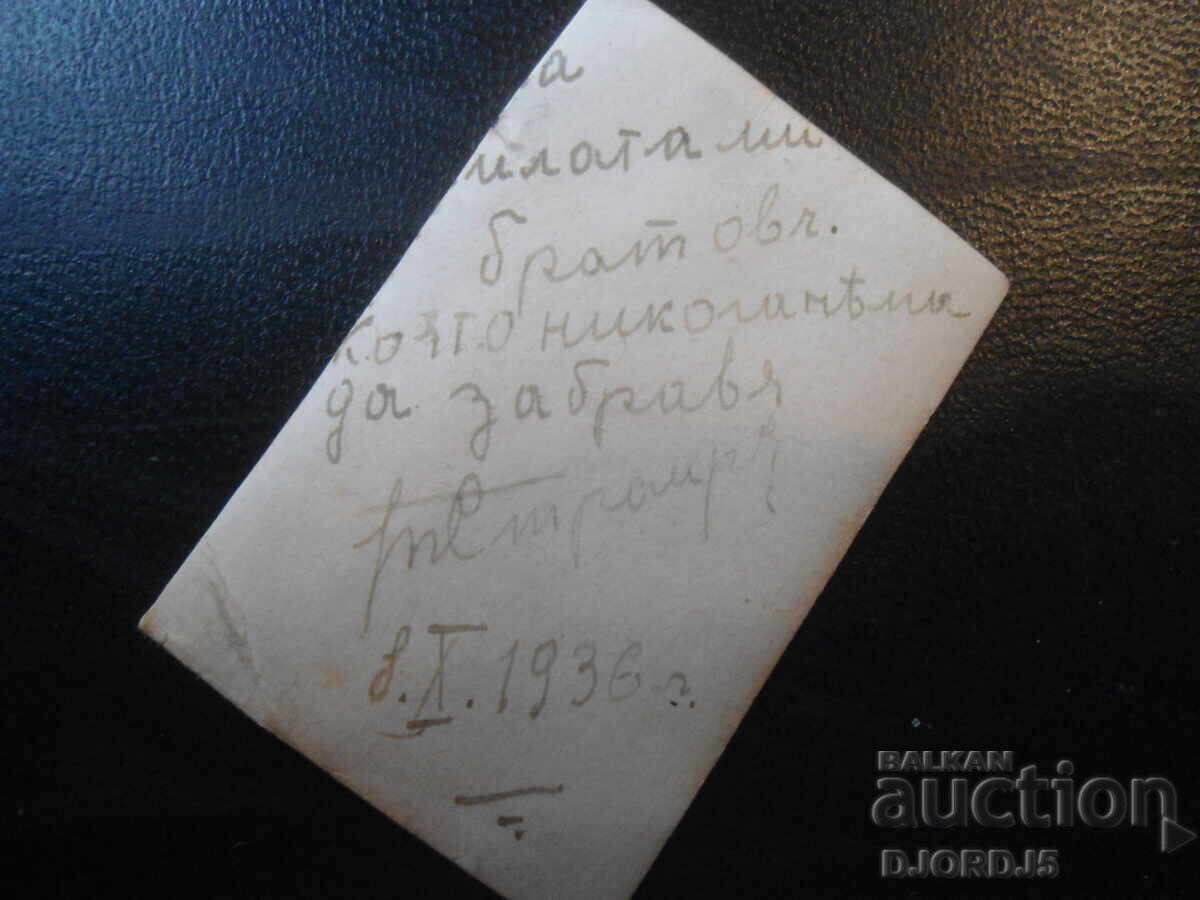 а
илата ми
братовч.
която никога нѣма
да забравя
8.X.1936 г.
BALKAN
auction
DJORDJ5